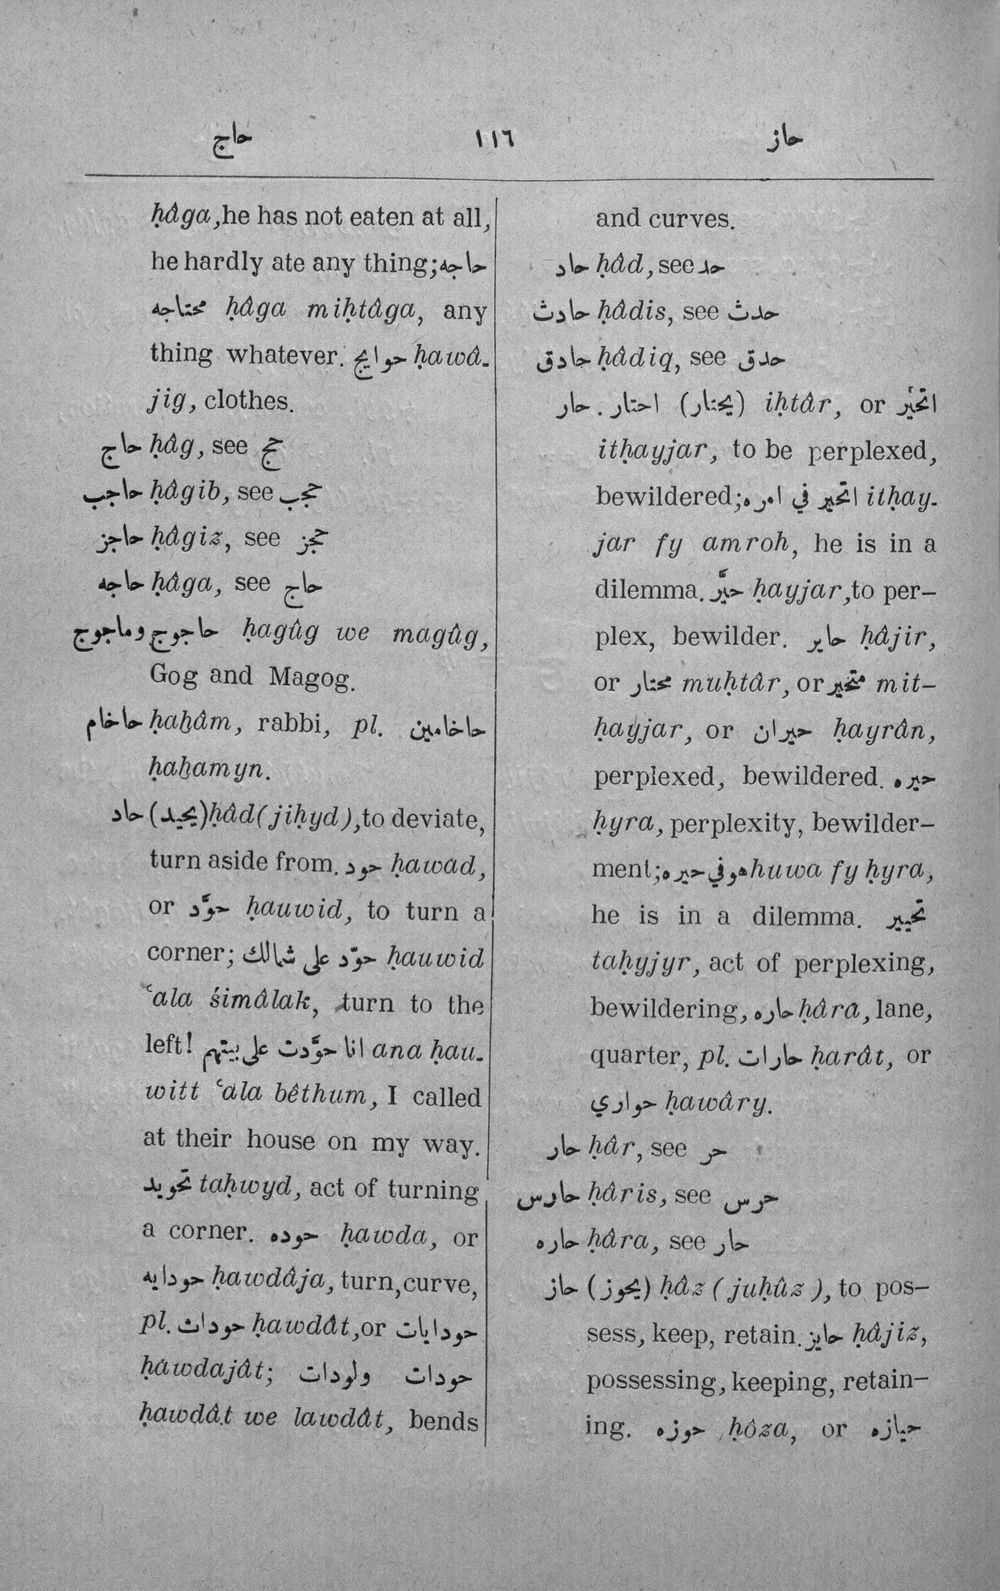 حاج ١١٦ حاز
ḥâga, he has not eaten at all,
he hardly ate any thing; حاجه
محتاجه ḥâga miḥtâga, any
thing whatever. حوايج ḥawâ-
jig, clothes.
حاج ḥâg, see حج
حاجب ḥâgib, see حجب
حاجز ḥâgiz, see حجز
حاجه ḥâga, see حاج
حاجوج وماجوج ḥagûg we magûg,
Gog and Magog.
حاخام ḥaḫâm, rabbi, pl. حاخامين
ḥaḫamyn.
حاد (يحيد) ḥâd (jiḥyd), to deviate,
turn aside from. حود ḥawad,
or حوّد ḥauwid, to turn a
corner; حوّد على شمالك ḥauwid
ʿala śimâlak, turn to the
left! انا حوّدت على بيتهم ana ḥau-
witt ʿala bêthum, I called
at their house on my way.
تحويد taḥwyd, act of turning
a corner. حوده ḥawda, or
حودايه ḥawdâja, turn, curve,
pl. حودات ḥawdât, or حودايات
ḥawdajât; حودات ولودات
ḥawdât we lawdât, bends
and curves.
حاد ḥâd, see حد
حادث ḥâdis, see حدث
حادق ḥâdiq, see حدق
حار . احتار (يحتار) iḥtâr, or اتحيّر
itḥayjar, to be perplexed,
bewildered; اتحير في امره itḥay-
jar fy amroh, he is in a
dilemma. حيّر ḥayjar, to per-
plex, bewilder. حاير ḥâjir,
or محتار muḥtâr, or متحير mit-
ḥayjar, or حيران ḥayrân,
perplexed, bewildered. حيره
ḥyra, perplexity, bewilder-
ment; هو في حيره huwa fy ḥyra,
he is in a dilemma. تحيير
taḥyjyr, act of perplexing,
bewildering, حاره ḥâra, lane,
quarter, pl. حارات ḥarât, or
حواري ḥawâry.
حار ḥâr, see حر
حارس ḥâris, see حرس
حاره ḥâra, see حار
حاز (يحوز) ḥâz (juḥûz), to pos-
sess, keep, retain. حايز ḥâjiz,
possessing, keeping, retain-
ing. حوزه ḥôza, or حيازه